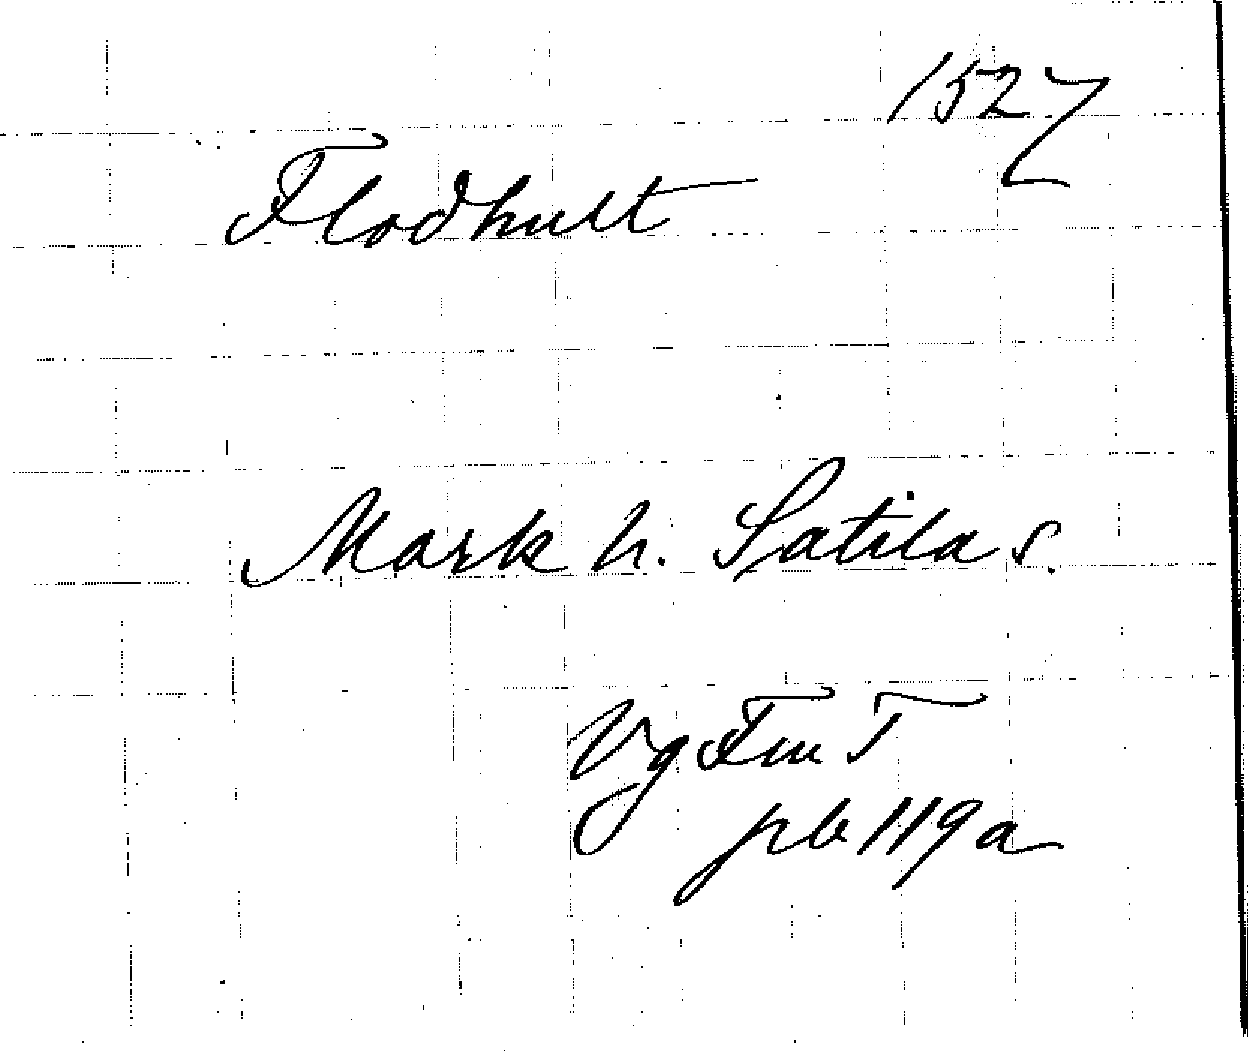 1527
Flodhult
Mark h. Satila s.
Vg Fm T
pb 119 a